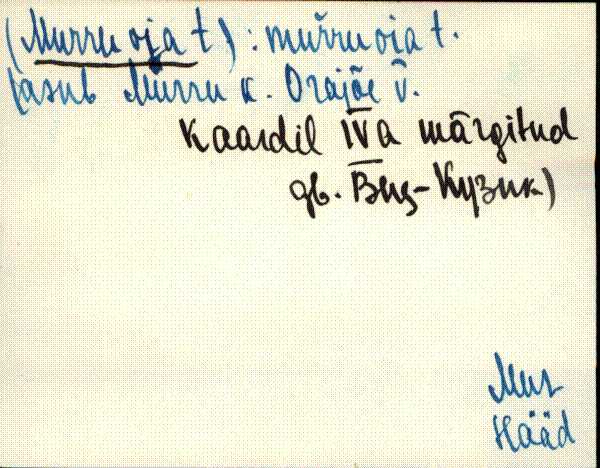 (Murru oja t): mur̆ru oja t.
(asub Murru k. Orajõe v.
Kaardil IV a märgitud
дв. Виц-Кузик)
Mus
Hääd